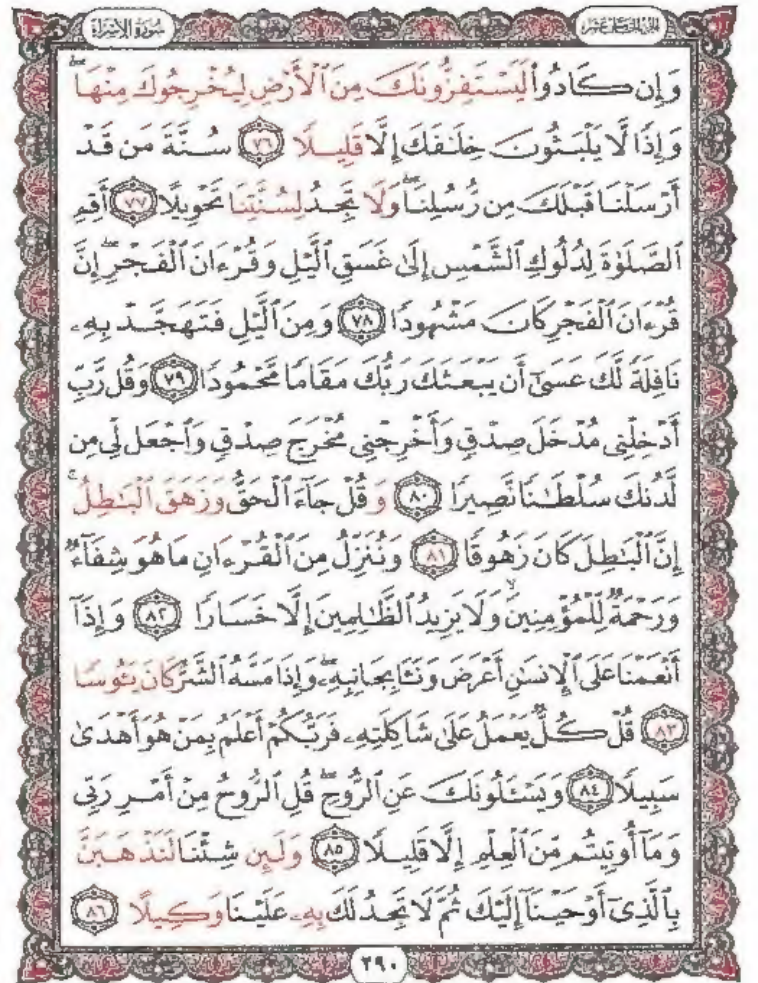 سُورَةُ الإِسْرَاءِ
الجزء الخامس عشر
وَإِن كَادُوا۟ لَيَسْتَفِزُّونَكَ مِنَ ٱلْأَرْضِ لِيُخْرِجُوكَ مِنْهَا ۖ
وَإِذًا لَّا يَلْبَثُونَ خِلَـٰفَكَ إِلَّا قَلِيلًا ٧٦ سُنَّةَ مَن قَدْ
أَرْسَلْنَا قَبْلَكَ مِن رُّسُلِنَا ۖ وَلَا تَجِدُ لِسُنَّتِنَا تَحْوِيلًا ٧٧ أَقِمِ
ٱلصَّلَوٰةَ لِدُلُوكِ ٱلشَّمْسِ إِلَىٰ غَسَقِ ٱلَّيْلِ وَقُرْءَانَ ٱلْفَجْرِ ۖ إِنَّ
قُرْءَانَ ٱلْفَجْرِ كَانَ مَشْهُودًا ٧٨ وَمِنَ ٱلَّيْلِ فَتَهَجَّدْ بِهِۦ
نَافِلَةً لَّكَ عَسَىٰٓ أَن يَبْعَثَكَ رَبُّكَ مَقَامًا مَّحْمُودًا ٧٩ وَقُل رَّبِّ
أَدْخِلْنِى مُدْخَلَ صِدْقٍ وَأَخْرِجْنِى مُخْرَجَ صِدْقٍ وَٱجْعَل لِّى مِن
لَّدُنكَ سُلْطَـٰنًا نَّصِيرًا ٨٠ وَقُلْ جَآءَ ٱلْحَقُّ وَزَهَقَ ٱلْبَـٰطِلُ ۚ
إِنَّ ٱلْبَـٰطِلَ كَانَ زَهُوقًا ٨١ وَنُنَزِّلُ مِنَ ٱلْقُرْءَانِ مَا هُوَ شِفَآءٌ
وَرَحْمَةٌ لِّلْمُؤْمِنِينَ ۙ وَلَا يَزِيدُ ٱلظَّـٰلِمِينَ إِلَّا خَسَارًا ٨٢ وَإِذَآ
أَنْعَمْنَا عَلَى ٱلْإِنسَـٰنِ أَعْرَضَ وَنَـَٔا بِجَانِبِهِۦ ۖ وَإِذَا مَسَّهُ ٱلشَّرُّ كَانَ يَـُٔوسًا
٨٣ قُلْ كُلٌّ يَعْمَلُ عَلَىٰ شَاكِلَتِهِۦ فَرَبُّكُمْ أَعْلَمُ بِمَنْ هُوَ أَهْدَىٰ
سَبِيلًا ٨٤ وَيَسْـَٔلُونَكَ عَنِ ٱلرُّوحِ ۖ قُلِ ٱلرُّوحُ مِنْ أَمْرِ رَبِّى
وَمَآ أُوتِيتُم مِّنَ ٱلْعِلْمِ إِلَّا قَلِيلًا ٨٥ وَلَئِن شِئْنَا لَنَذْهَبَنَّ
بِٱلَّذِىٓ أَوْحَيْنَآ إِلَيْكَ ثُمَّ لَا تَجِدُ لَكَ بِهِۦ عَلَيْنَا وَكِيلًا ٨٦
٢٩٠